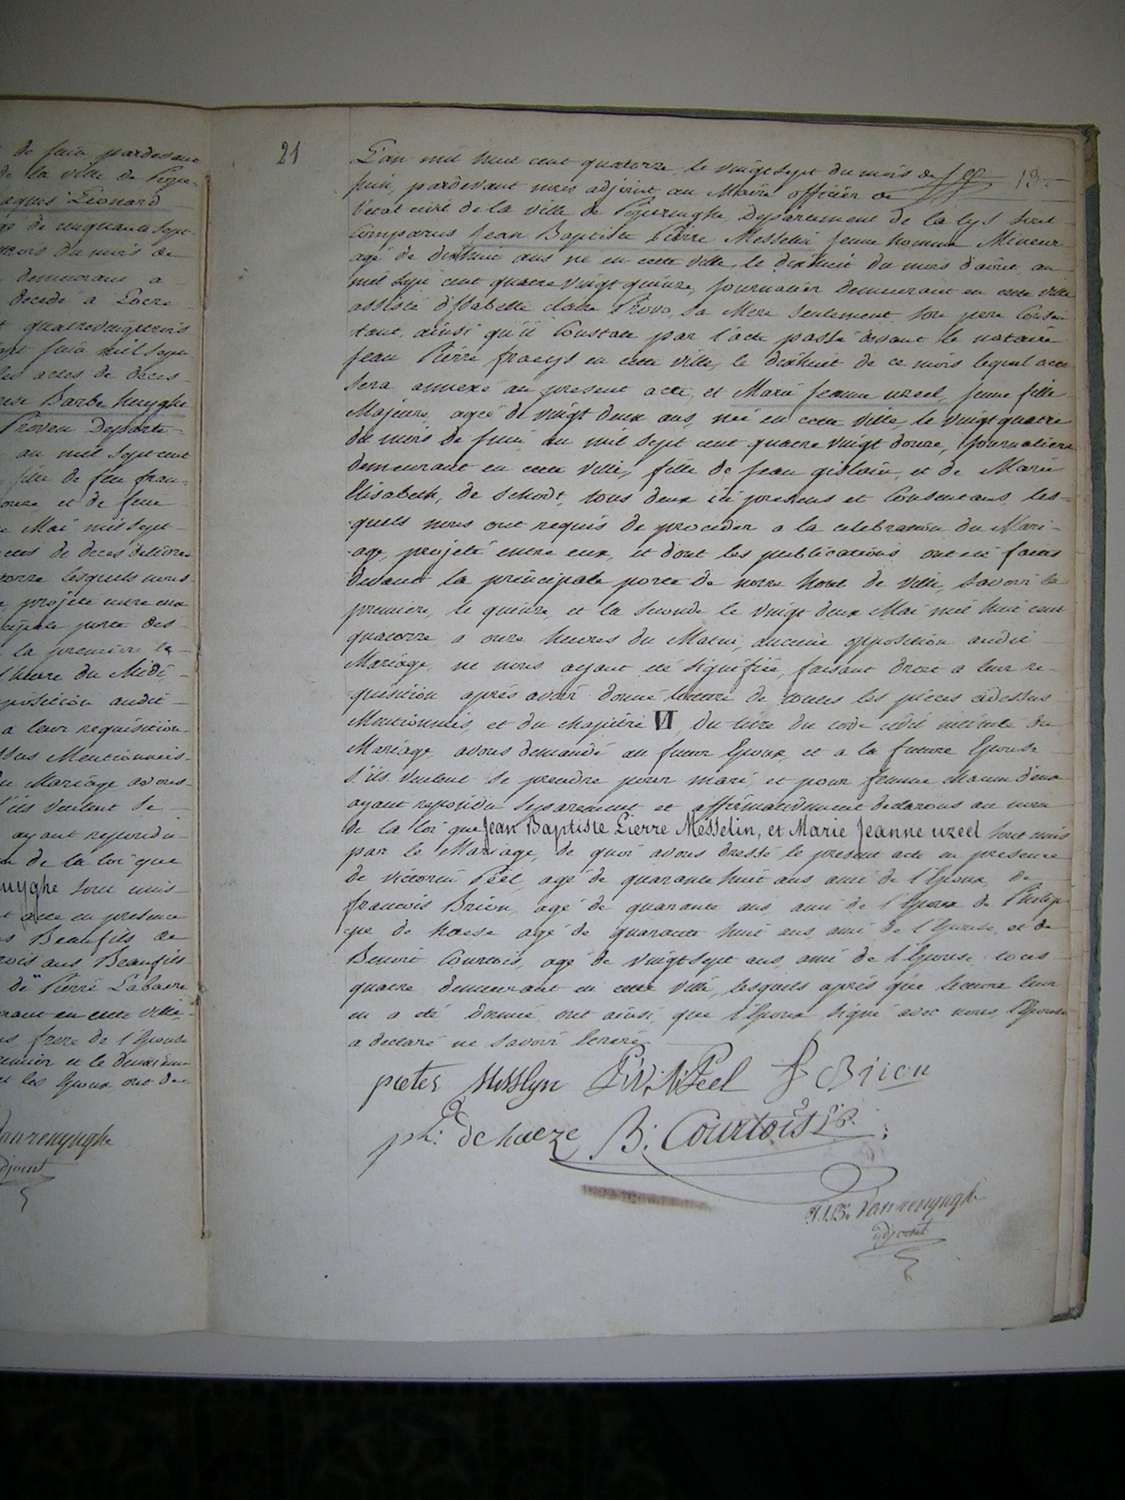 de juin pardevant
de la ville de Pope-
Jaques Léonard
de cinquante sept
mois de
demeurant a
decedé à Locre
quatrevingttrois
juin mil sept
les actes de deces
Barbe huyghe
Proven Departe-
au mil sept cent
fille de feu fran-
et de feue
Mai mil sept
actes de deces delivrés
lesquels nous
projeté entre eux
principale porte des
la premiere le
l'heure du Midi
opposition audit
a leur requisition
dessus Mentionnées
du Mariage avons
s'ils veulent se
ayant repondu
de la loi que
huyghe sont unis
acte en presence
Beaufils de
trois ans Beaufils
de Pierre Labaere
demeurant en cette ville
frere de l'Epouse
premier et le deuxième
et les Epoux ont de
Vanrenynghe
adjoint
21
L'an mil huit cent quatorze le vingtsept du mois de 19
Juin, pardevant nous adjoint au Maire officier de
l'etat civil de la ville de Poperinghe Departement de la Lys sont
Comparus Jean Baptiste Pierre Messelin jeune homme Mineur
agé de dixhuit ans né en cette ville, le dixhuit du mois d'août an
mil sept cent quatre vingt quinze, journalier demeurant en cette ville
assisté d'Isabelle Claire Provo, sa Mere seulement son pere Consen
tant, ainsi qu'il Constate par l'acte passé devant le notaire
Jean Pierre fraeys en cette ville, le dixhuit de ce mois lequel acte
sera annexé au present acte, et Marie Jeanne uzeel, jeune fille
Majeure, agée de vingt deux ans, née en cette ville, le vingtquatre
du mois de juin an mil sept cent quatre vingt douze, journaliere
demeurant en cette ville, fille de Jean gislain, et de Marie
Elisabeth, de schodt, tous deux ici presens et Consentans, les-
quels nous ont requis de proceder a la celebration du Mari-
age projeté entre eux, et dont les publications ont été faites
devant la principale porte de notre hotel de ville, savoir la
premiere, le quinze, et la seconde le vingt deux Mai mil huit cent
quatorze a onze heures du Matin, aucune opposition audit
Mariage ne nous ayant été signifiée, faisant droit a leur re-
quisition après avoir donné lecture de toutes les pièces cidessus
Mentionnées, et du chapitre VI du titre du code civil intitulé du
Mariage avons demandé au futur Epoux, et a la future Epouse
s'ils veulent se prendre pour mari et pour femme chacun d'eux
ayant repondu separement et affirmativement declarons au nom
de la loi que Jean Baptiste Pierre Messelin, et Marie Jeanne uzeel sont unis
par le Mariage, de quoi avons dressé le present acte en presence
de victorin Péel, agé de quarante huit ans ami de l'Epoux, de
francois Brion, agé de quarante ans, ami de l'Epoux de Philip-
pe de haese agé de quarante huit ans ami de l'Epouse, et de
Benoit Courtois, agé de vingtsept ans, ami de l'Epouse tous
quatre demeurant en cette ville, lesquels après que lecture leur
en a été donnée ont ainsi que l'Epoux signé avec nous, l'Epouse
a declaré ne savoir Ecrire
pieter Messlyn Péel f Brion
ph: de haeze B: Courtois
Vanrenynghe
adjoint